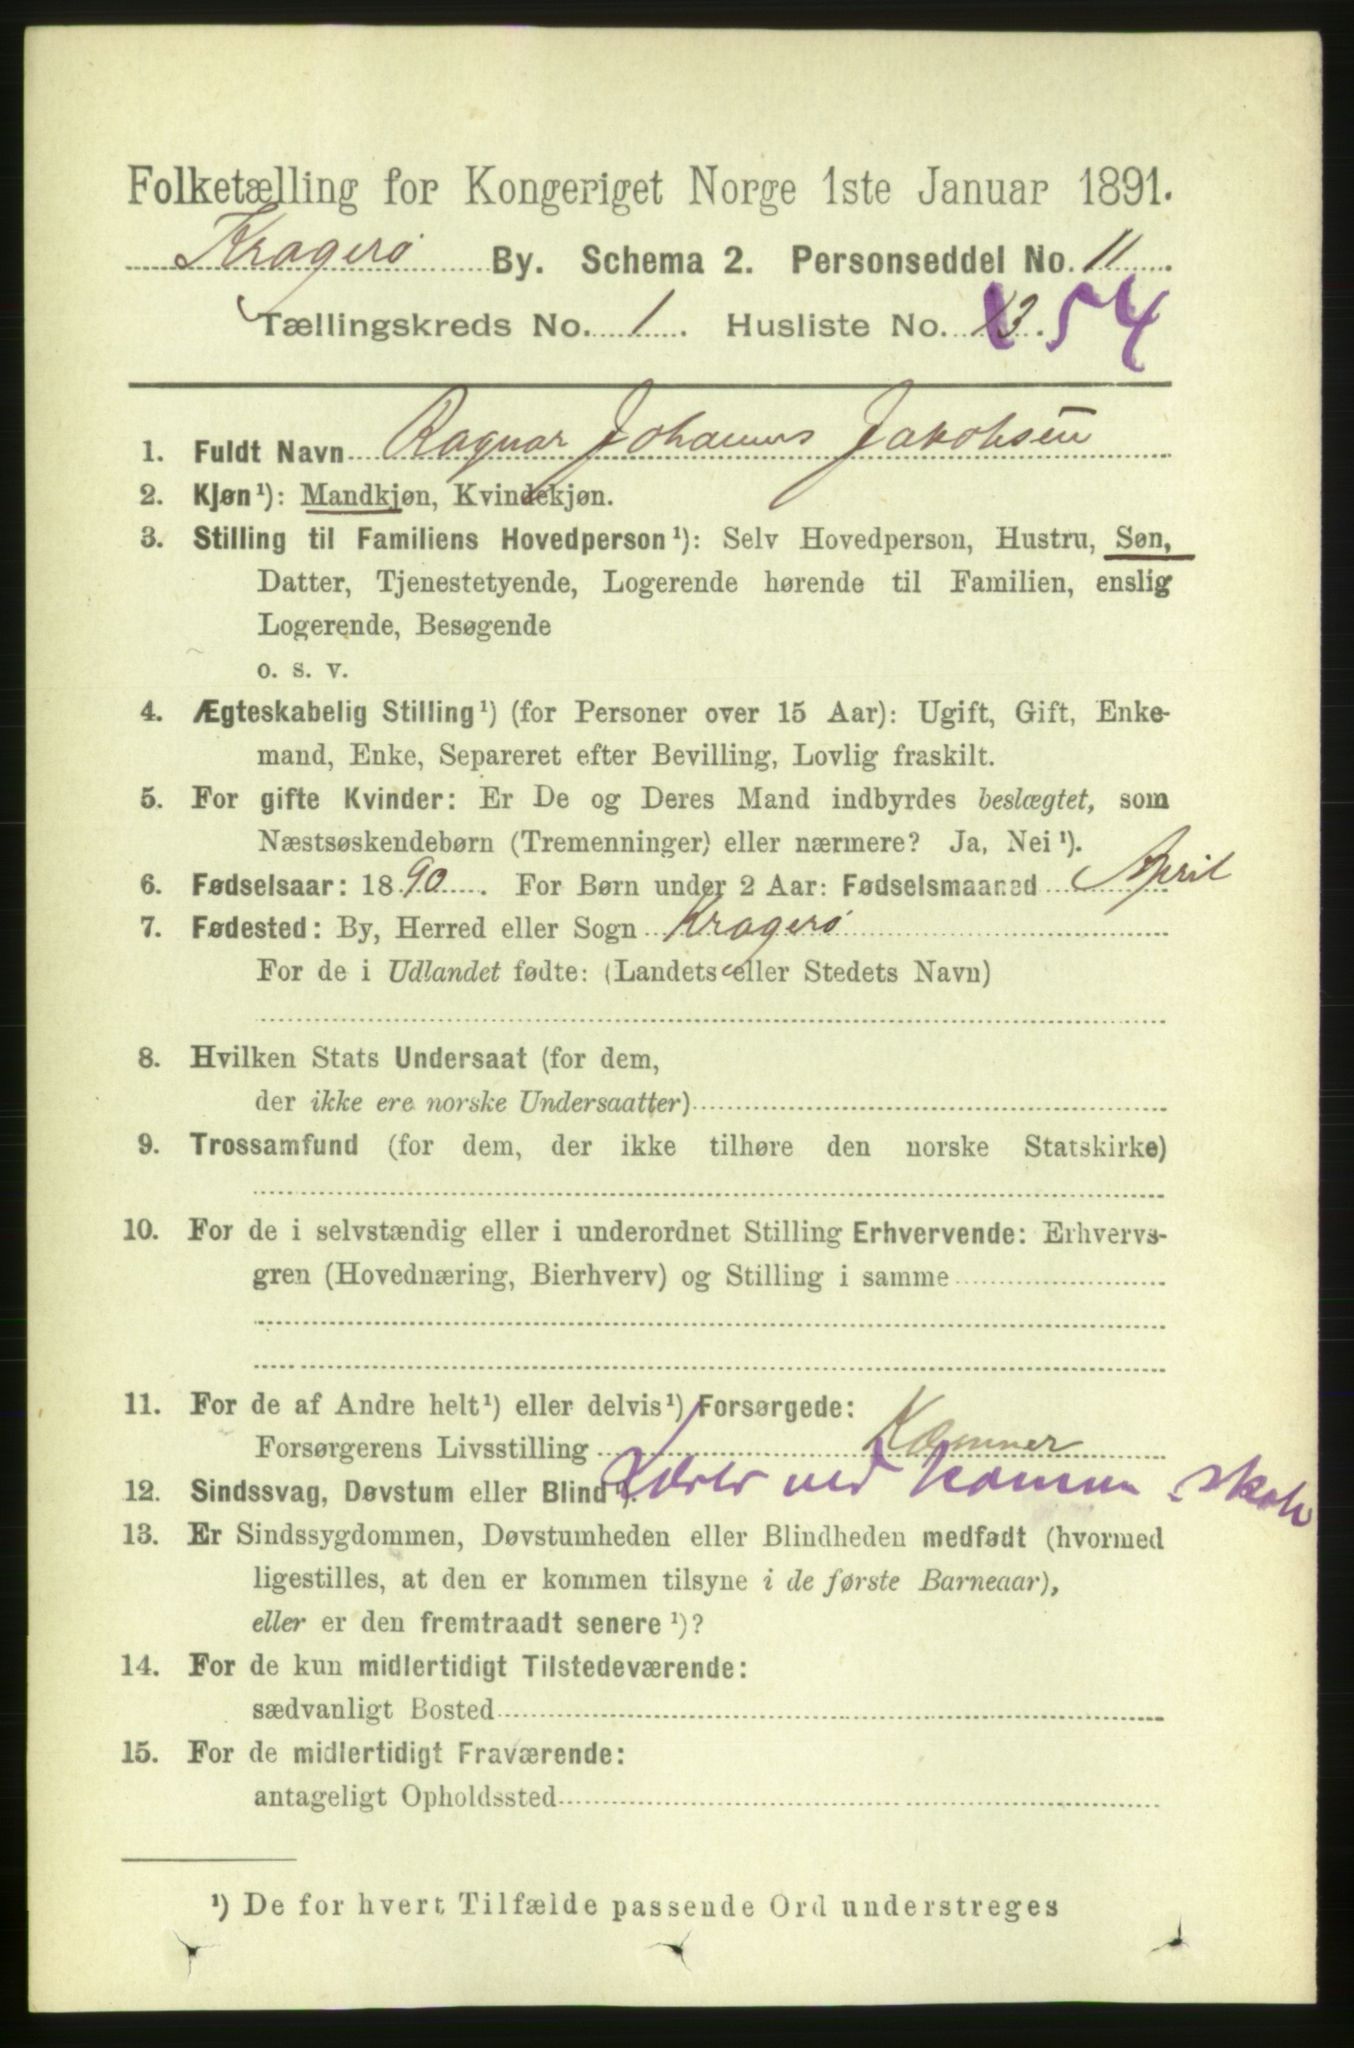 Folketælling for Kongeriget Norge 1ste Januar 1891.
Kragerø By. Schema 2. Personseddel No. 11
Tællingskreds No. 1. Husliste No. 13. 54
1. Fuldt Navn Ragnar Johannes Jakobsen
2. Kjøn¹): Mandkjøn, Kvindekjøn.
3. Stilling til Familiens Hovedperson¹): Selv Hovedperson, Hustru, Søn,
Datter, Tjenestetyende, Logerende hørende til Familien, enslig
Logerende, Besøgende
o. s. v.
4. Ægteskabelig Stilling¹) (for Personer over 15 Aar): Ugift, Gift, Enke-
mand, Enke, Separeret efter Bevilling, Lovlig fraskilt.
5. For gifte Kvinder: Er De og Deres Mand indbyrdes beslægtet, som
Næstsøskendebørn (Tremenninger) eller nærmere? Ja, Nei¹).
6. Fødselsaar: 1890. For Børn under 2 Aar: Fødselsmaaned April
7. Fødested: By, Herred eller Sogn Kragerø
For de i Udlandet fødte: (Landets eller Stedets Navn)
8. Hvilken Stats Undersaat (for dem,
der ikke ere norske Undersaatter)
9. Trossamfund (for dem, der ikke tilhøre den norske Statskirke)
10. For de i selvstændig eller i underordnet Stilling Erhvervende: Erhvervs-
gren (Hovednæring, Bierhverv) og Stilling i samme
11. For de af Andre helt¹) eller delvis¹) Forsørgede:
Forsørgerens Livsstilling Kæmner
Lærer ved kommu. skole
12. Sindssvag, Døvstum eller Blind¹).
13. Er Sindssygdommen, Døvstumheden eller Blindheden medfødt (hvormed
ligestilles, at den er kommen tilsyne i de første Barneaar),
eller er den fremtraadt senere¹)?
14. For de kun midlertidigt Tilstedeværende:
sædvanligt Bosted
15. For de midlertidigt Fraværende:
antageligt Opholdssted
¹) De for hvert Tilfælde passende Ord understreges